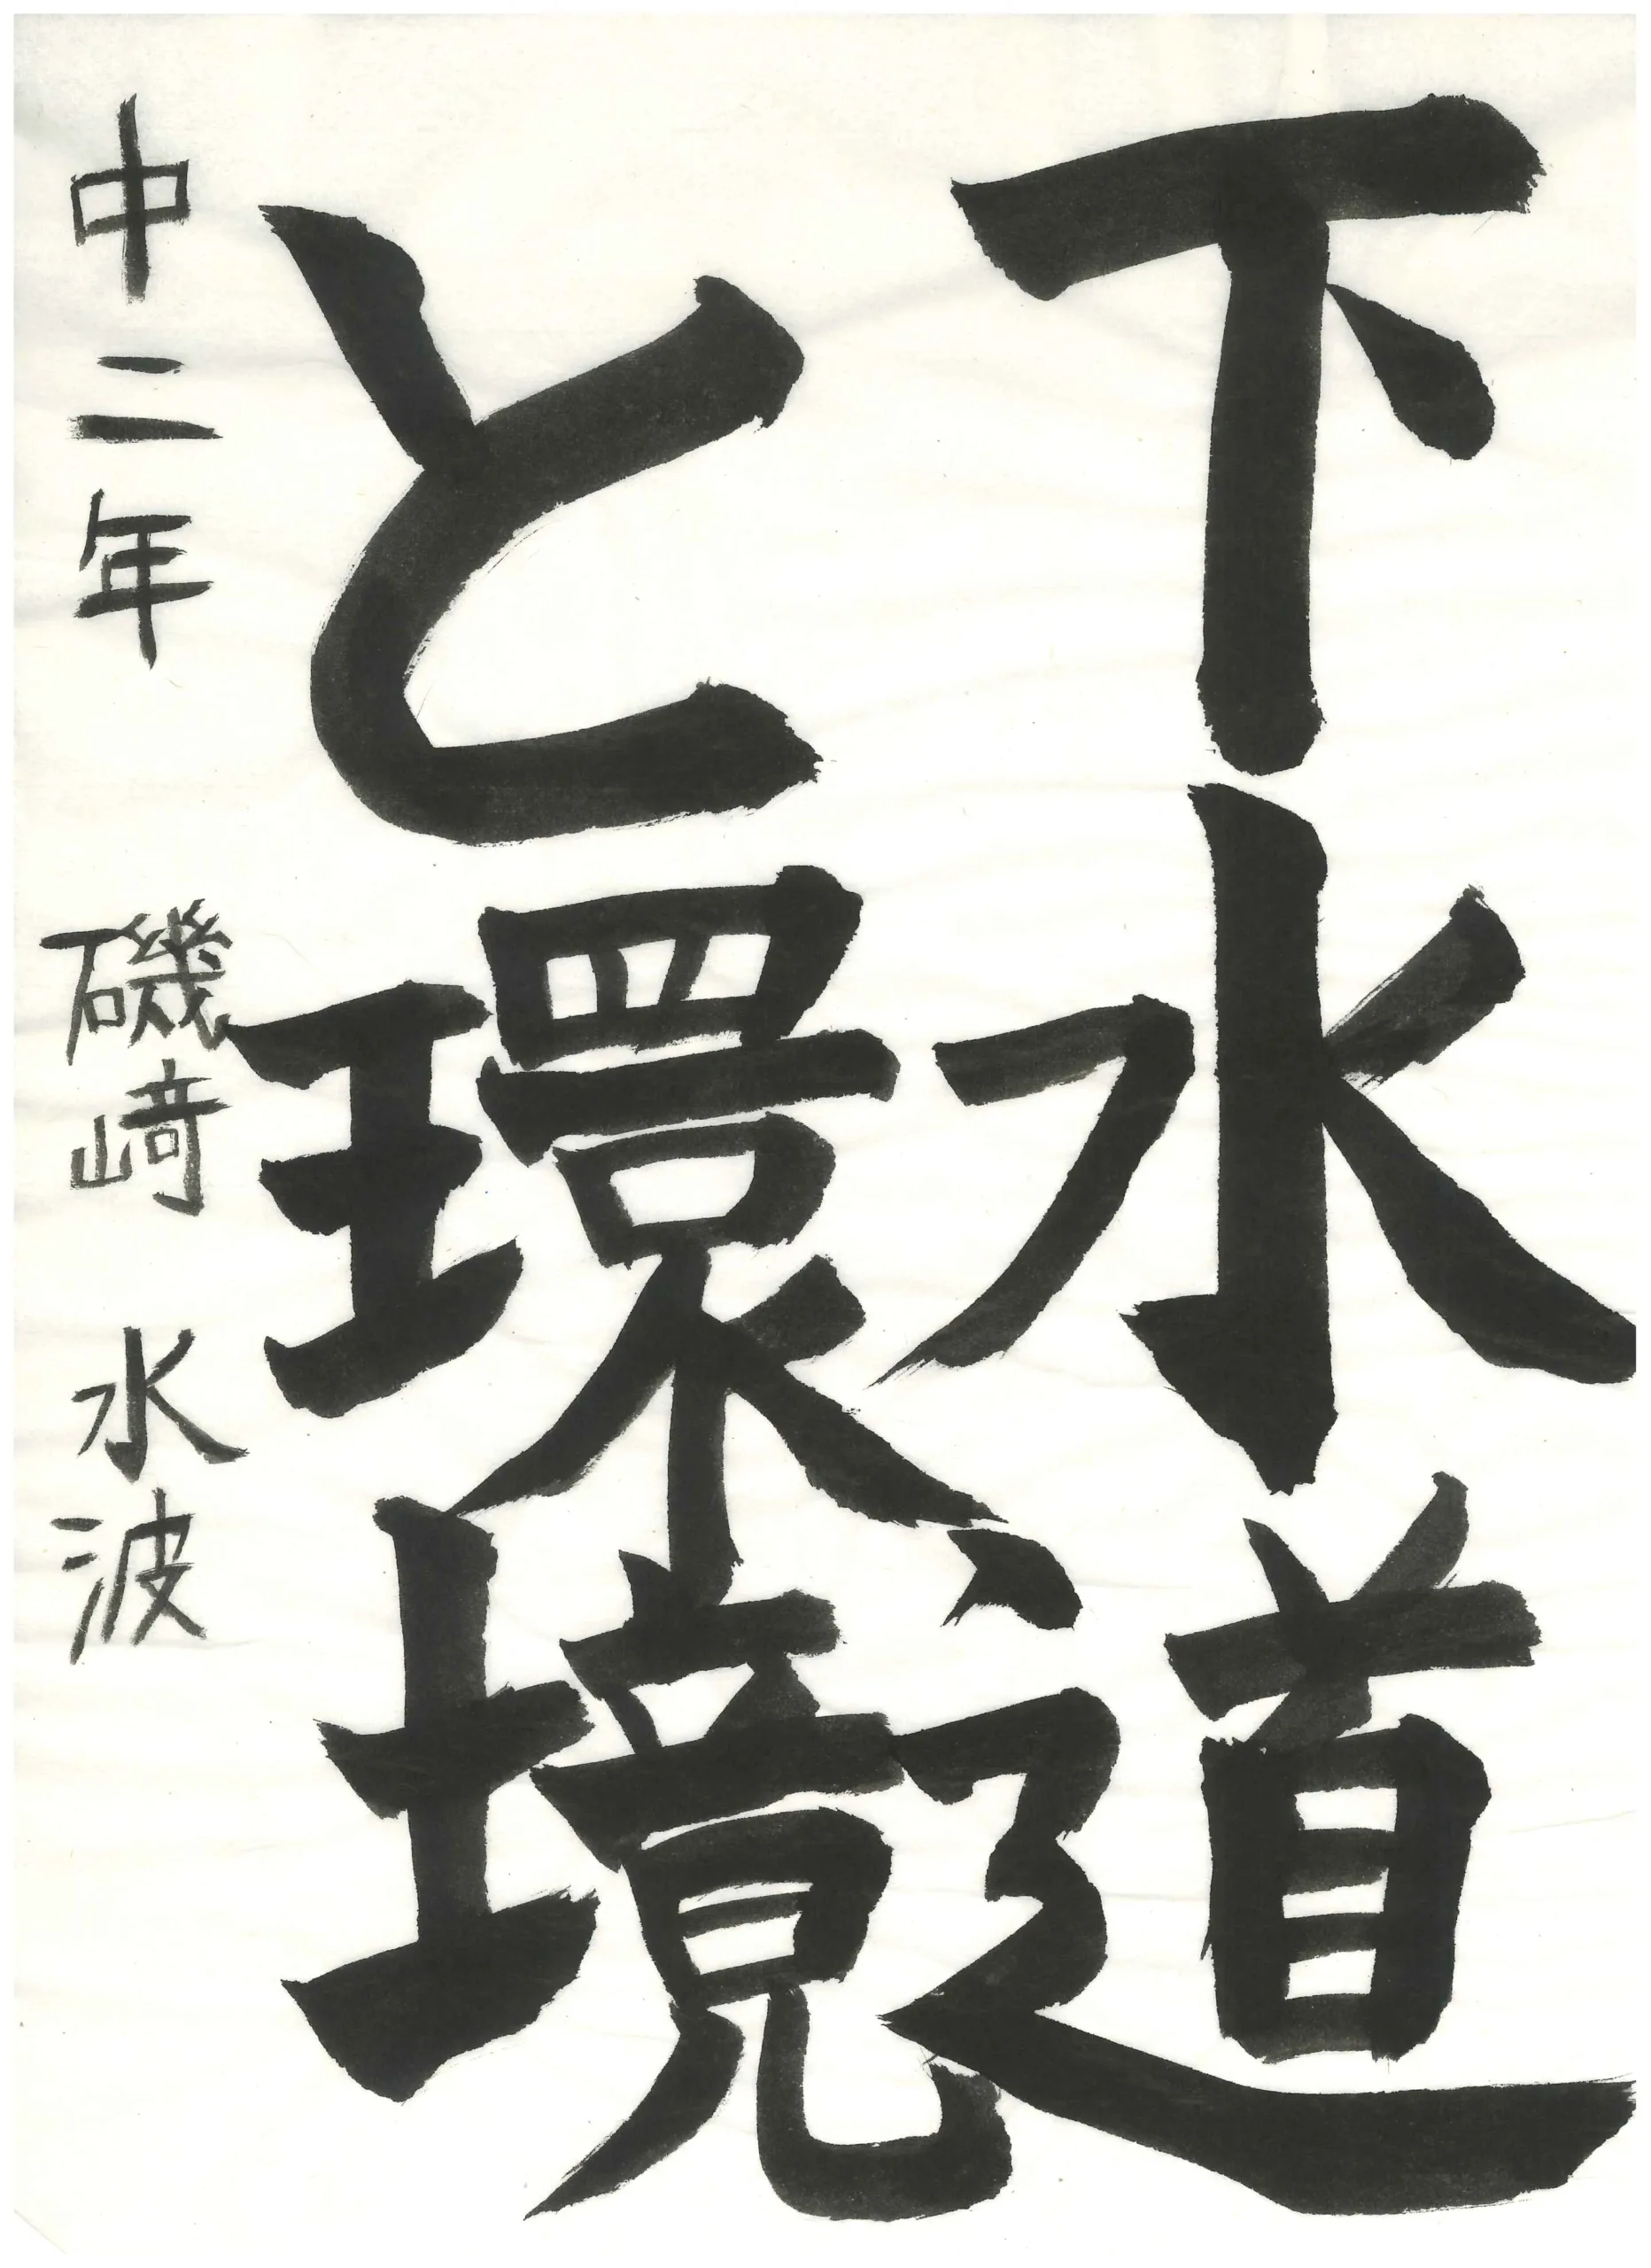 下水道
と環境
中二年 磯﨑 水波